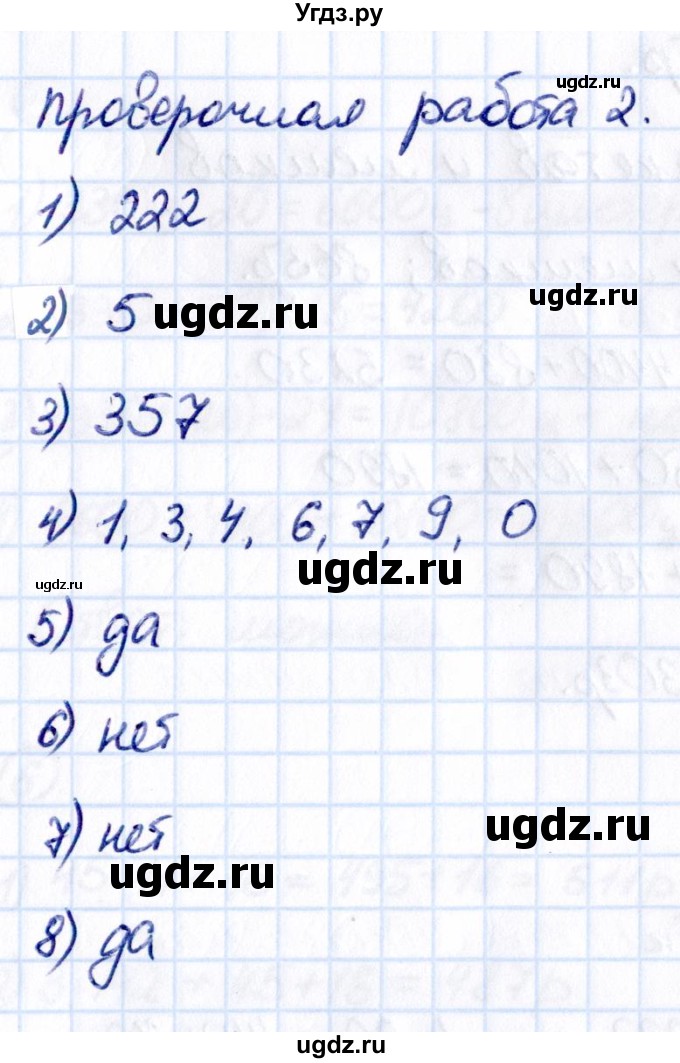 Угдз.ру
ugdz.ru
Проверочная работа 2.
1) 222
ugdz.ru
2) 5 ugdz.ru
3) 357
4) 1, 3, 4, 6, 7, 9, 0
ugdz.ru
ugdz.ru
5) да
6) нет
ugdz.ru
7) нет
ugdz.ru
8) да
ugdz.ru